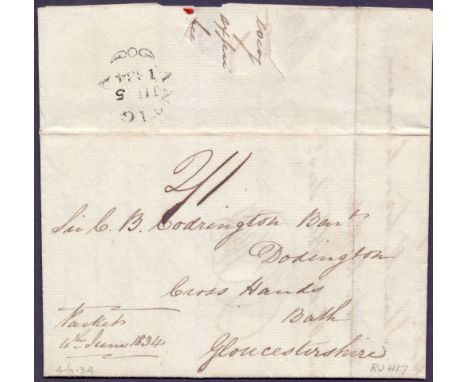 ANTIGUA
JU 5
1834
2/1
Sir C. B. Codrington Bart
Dodington
Cross Hands
Bath
Gloucestershire
Packet
4th June 1834
4-6-34
RJH17